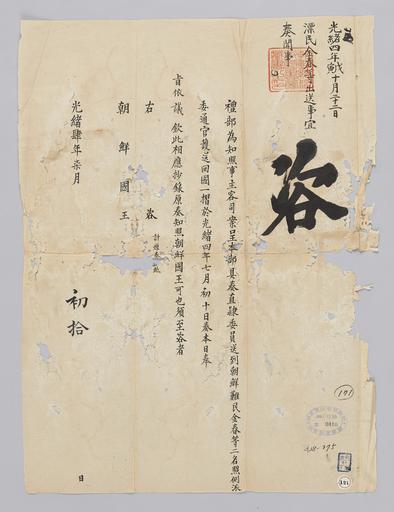 光緒四年戊寅十月二十二日
漂民金春等出送事宜
奏聞事
咨
禮部為知照事主客司案呈本部具奏直隸委員送到朝鮮難民金春等二名照例派
委通官護送回國一摺於光緒四年七月初十日奏本日奉
旨依議欽此相應抄錄原奏知照朝鮮國王可也須至咨者
右咨
朝鮮國王
光緒肆年柒月初拾日
191
121